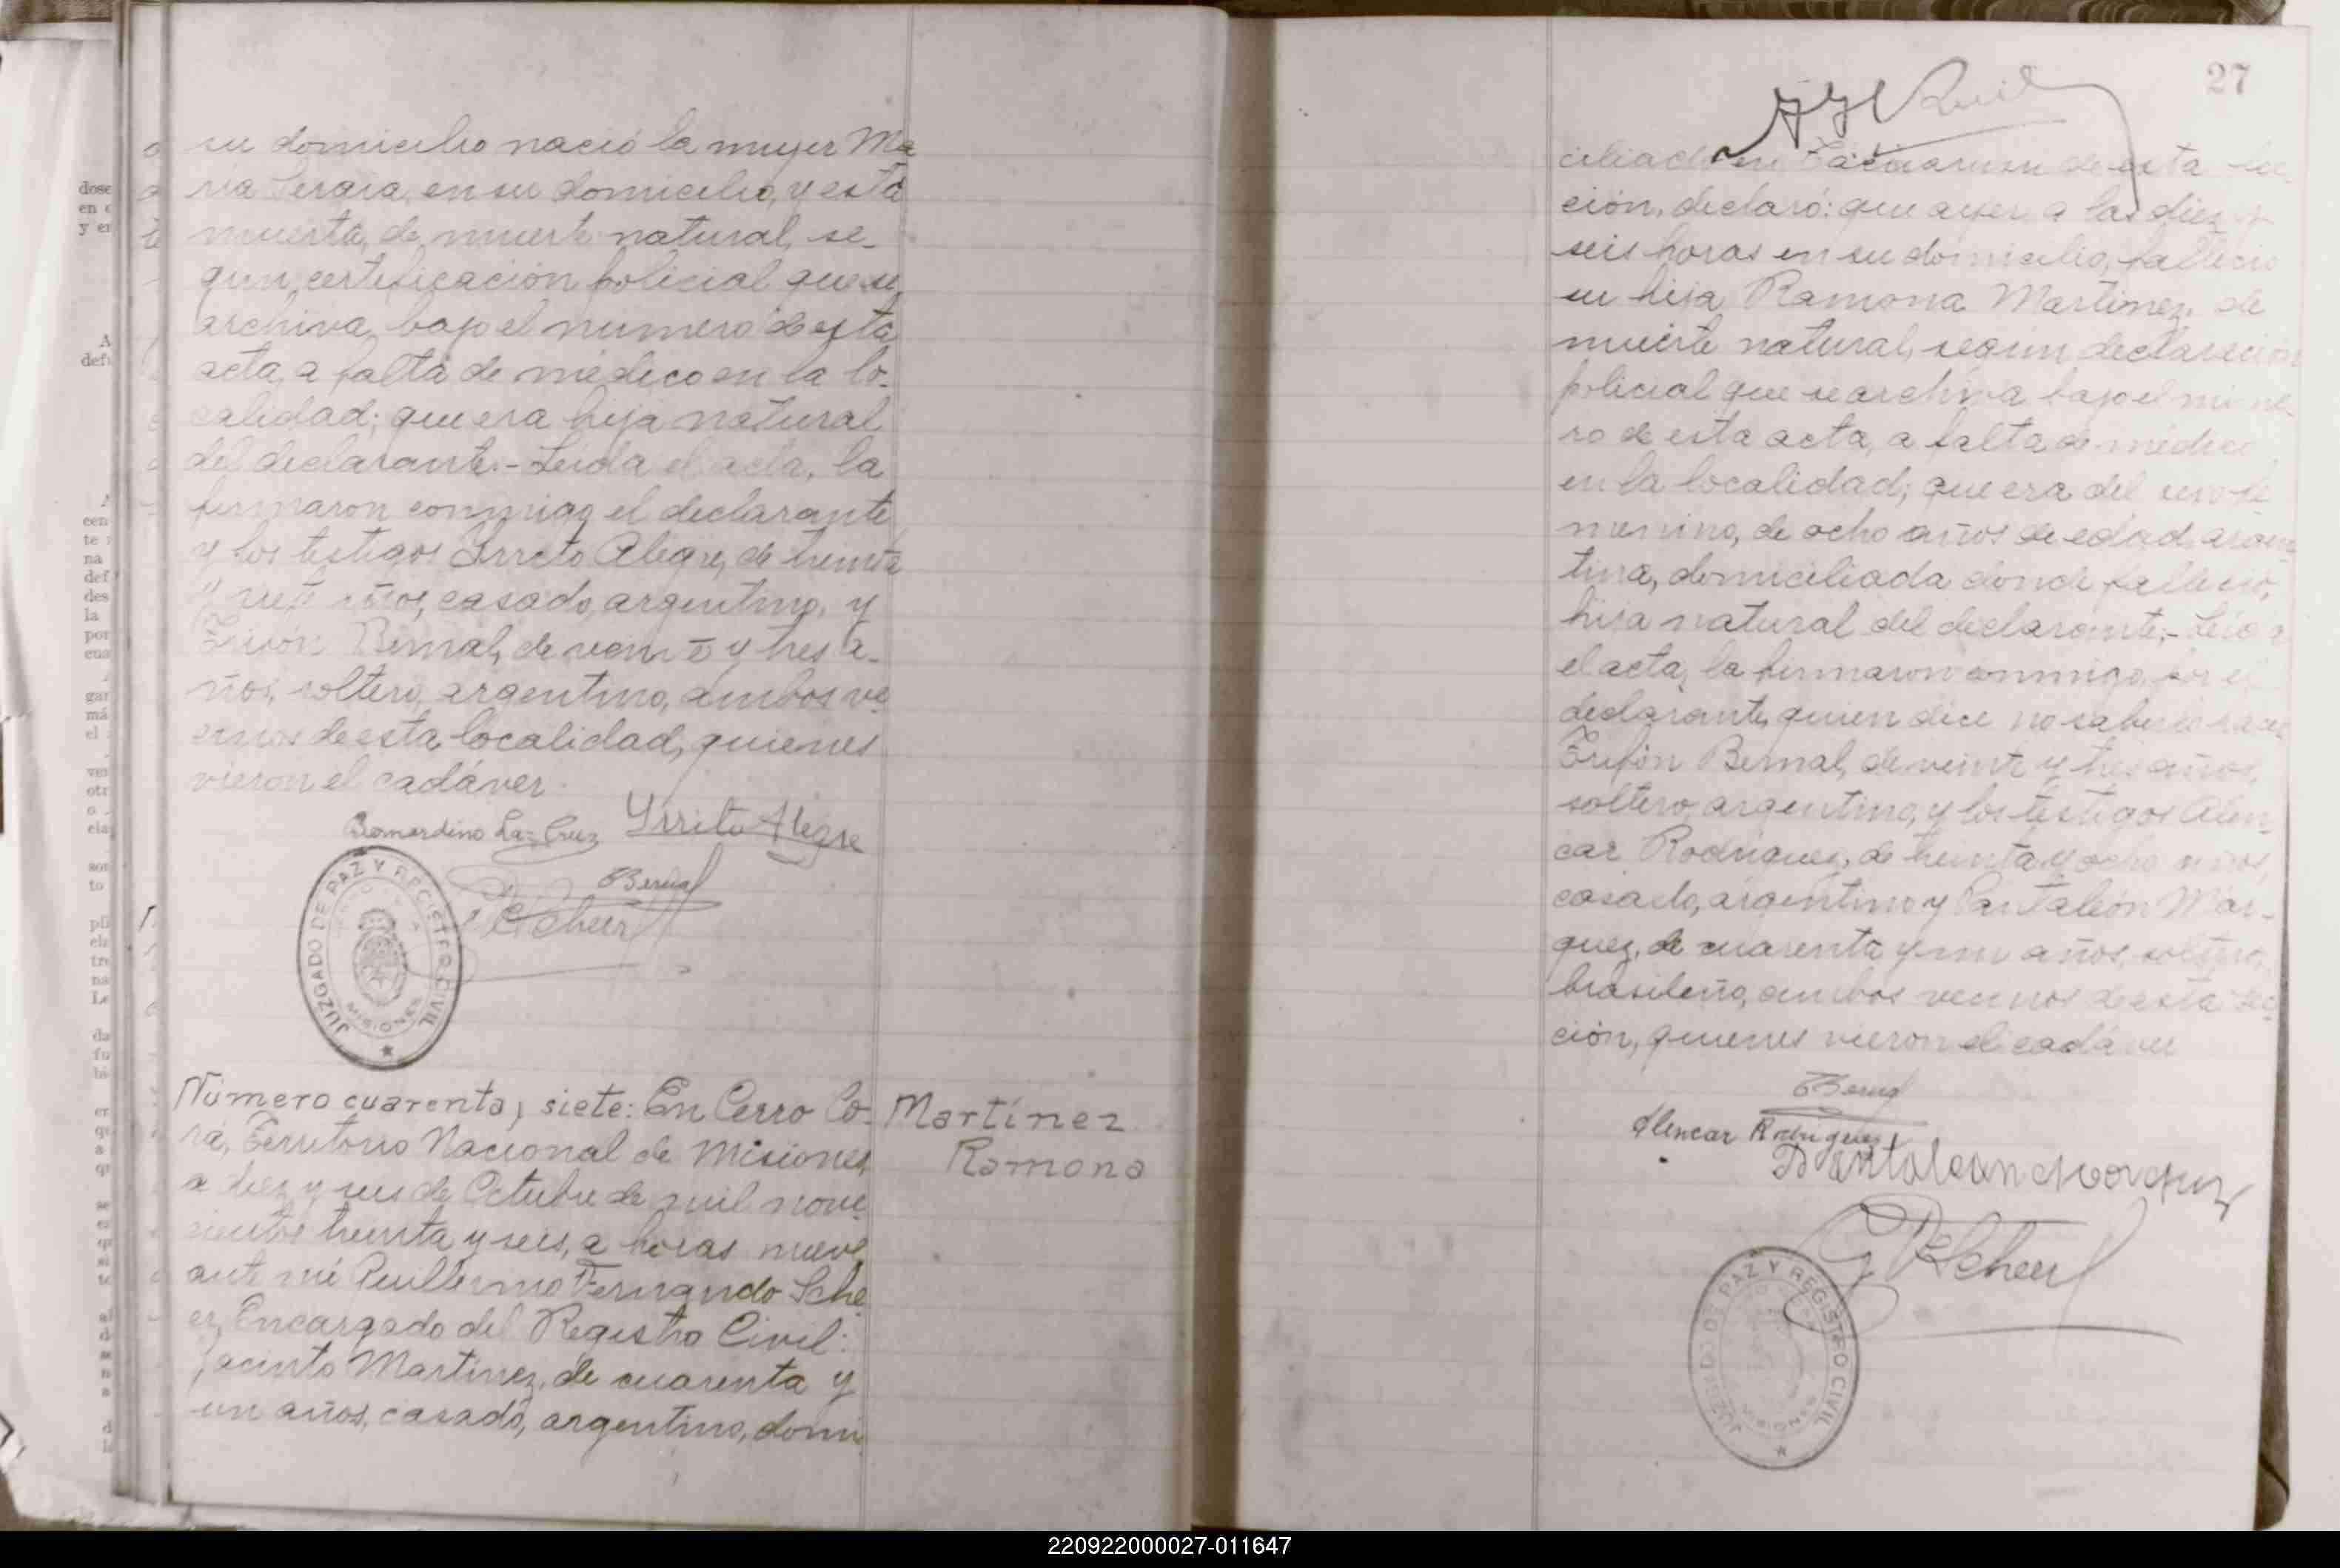 su domicilio nació la mujer Ma
ria Sergia, en su domicilio, y está
muerta, de muerte natural, se-
gun certificación policial que se
archiva bajo el numero de esta
acta, a falta de médico en la lo-
calidad; que era hija natural
del declarante.- Leida el acta, la
firmaron conmigo el declarante
y los testigos Irreto Alegre, de treinta
y siete años, casado, argentino, y
Bernal, de veinte y tres a-
ños, soltero, argentino, ambos ve
cinos de esta localidad, quienes
vieron el cadáver.
Bernardino La Cruz Yrrito Alegre
TBernal
Scheer
JUZGADO DE PAZ Y REGISTRO CIVIL
MISIONES
Número cuarenta y siete: En Cerro Co-
rá, Territorio Nacional de Misiones,
a diez y seis de Octubre de mil nove-
cientos treinta y seis, a horas nueve
ante mi Guillermo Fernando Sche
er, Encargado del Registro Civil:
Jacinto Martinez, de cuarenta y
un años, casado, argentino, domi
Martínez
Ramona
27
ciliado en de esta sec
ción, declaró: que ayer a las diez y
seis horas en su domicilio, falleció
su hija Ramona Martinez, de
muerte natural, según declaración
policial que se archiva bajo el núme-
ro de esta acta, a falta de médico
en la localidad; que era del sexo fe
menino, de ocho años de edad, argen
tina, domiciliada donde falleció,
hija natural del declarante.- Leida
el acta, la firmaron conmigo por el
declarante, quien dice no saber hacer
Trifón Bernal, de veinte y tres años,
soltero, argentino, y los testigos Alen
car Rodriguez, de treinta y ocho años,
casado, argentino y Pantaleón Mar-
quez, de cuarenta y un años, soltero,
brasileño, ambos vecinos de esta sec
ción, quienes vieron el cadáver
TBernal
Alencar Rodriguez
Pantaleon Marquez
Scheer
JUZGADO DE PAZ Y REGISTRO CIVIL
MISIONES
220922000027-011647